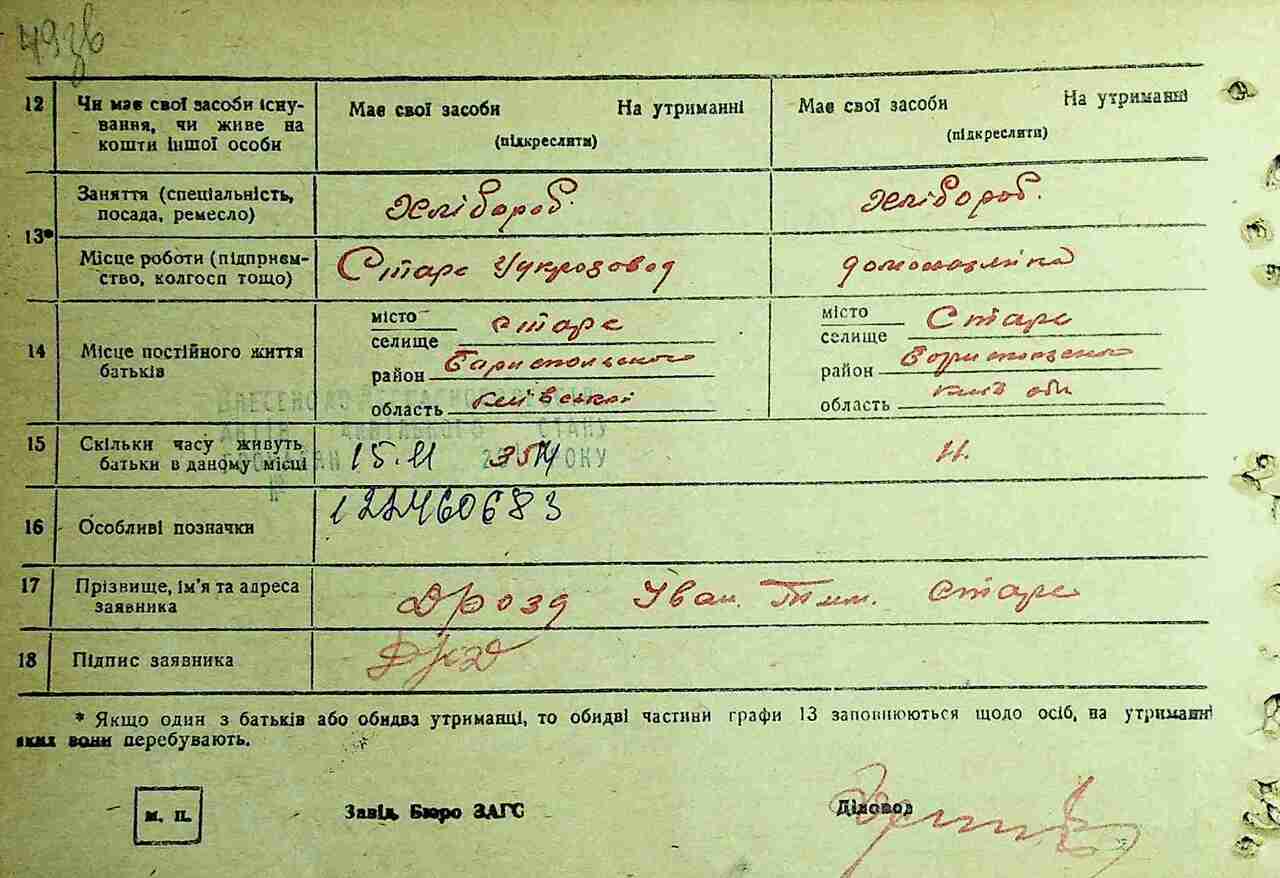 49зв
12 Чи має свої засоби існу-
вання, чи живе на
кошти іншої особи
Має свої засоби На утриманні
(підкреслити)
Має свої засоби На утриманні
(підкреслити)
13*
Заняття (спеціальність,
посада, ремесло)
Хлібороб.
Хлібороб.
Місце роботи (підприєм-
ство, колгосп тощо)
Старе Цукрозовод
домохазяйка
14 Місце постійного життя
батьків
місто
селище
Старе
район Бариспольского
область Київської
місто
селище
Старе
район
область Київ обл
15 Скільки часу живуть
батьки в даному місці
15.11
ВНЕСЕНО ДО
АКТІВ ЦИВІЛЬНОГО СТАНУ
ГРОМАДЯН РОКУ
№
16 Особливі позначки
122460683
17 Прізвище, ім'я та адреса
заявника
Дрозд Іван. Тим. Старе
18 Підпис заявника
* Якщо один з батьків або обидва утриманці, то обидві частини графи 13 заповнюються щодо осіб, на утриманні
яких вони перебувають.
м. п.
Завід. Бюро ЗАГС
Діловод